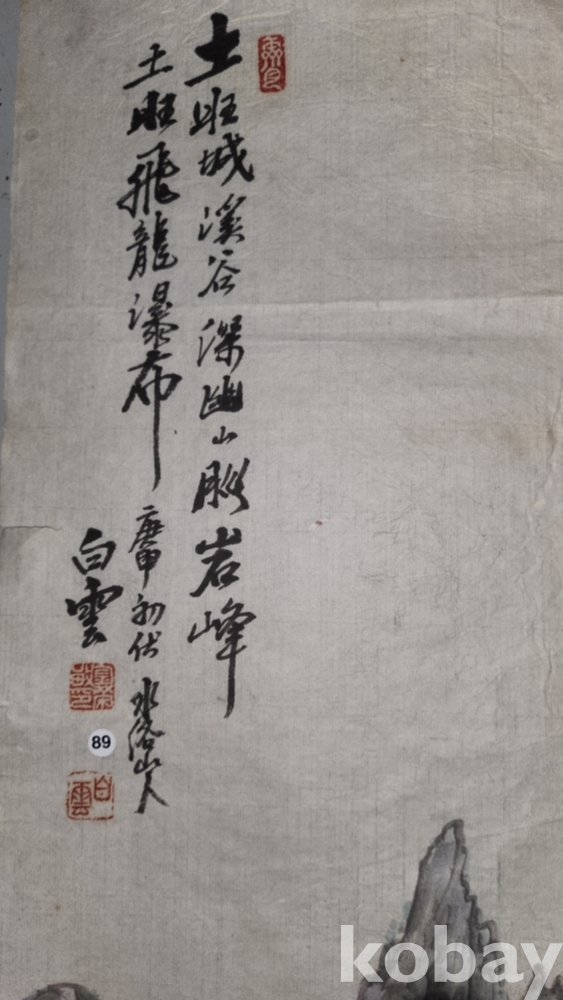 土旺城溪谷深幽山脈岩峰
土旺飛龍瀑布 庚申初伏 水山人
白雲
89
白雲
kobay